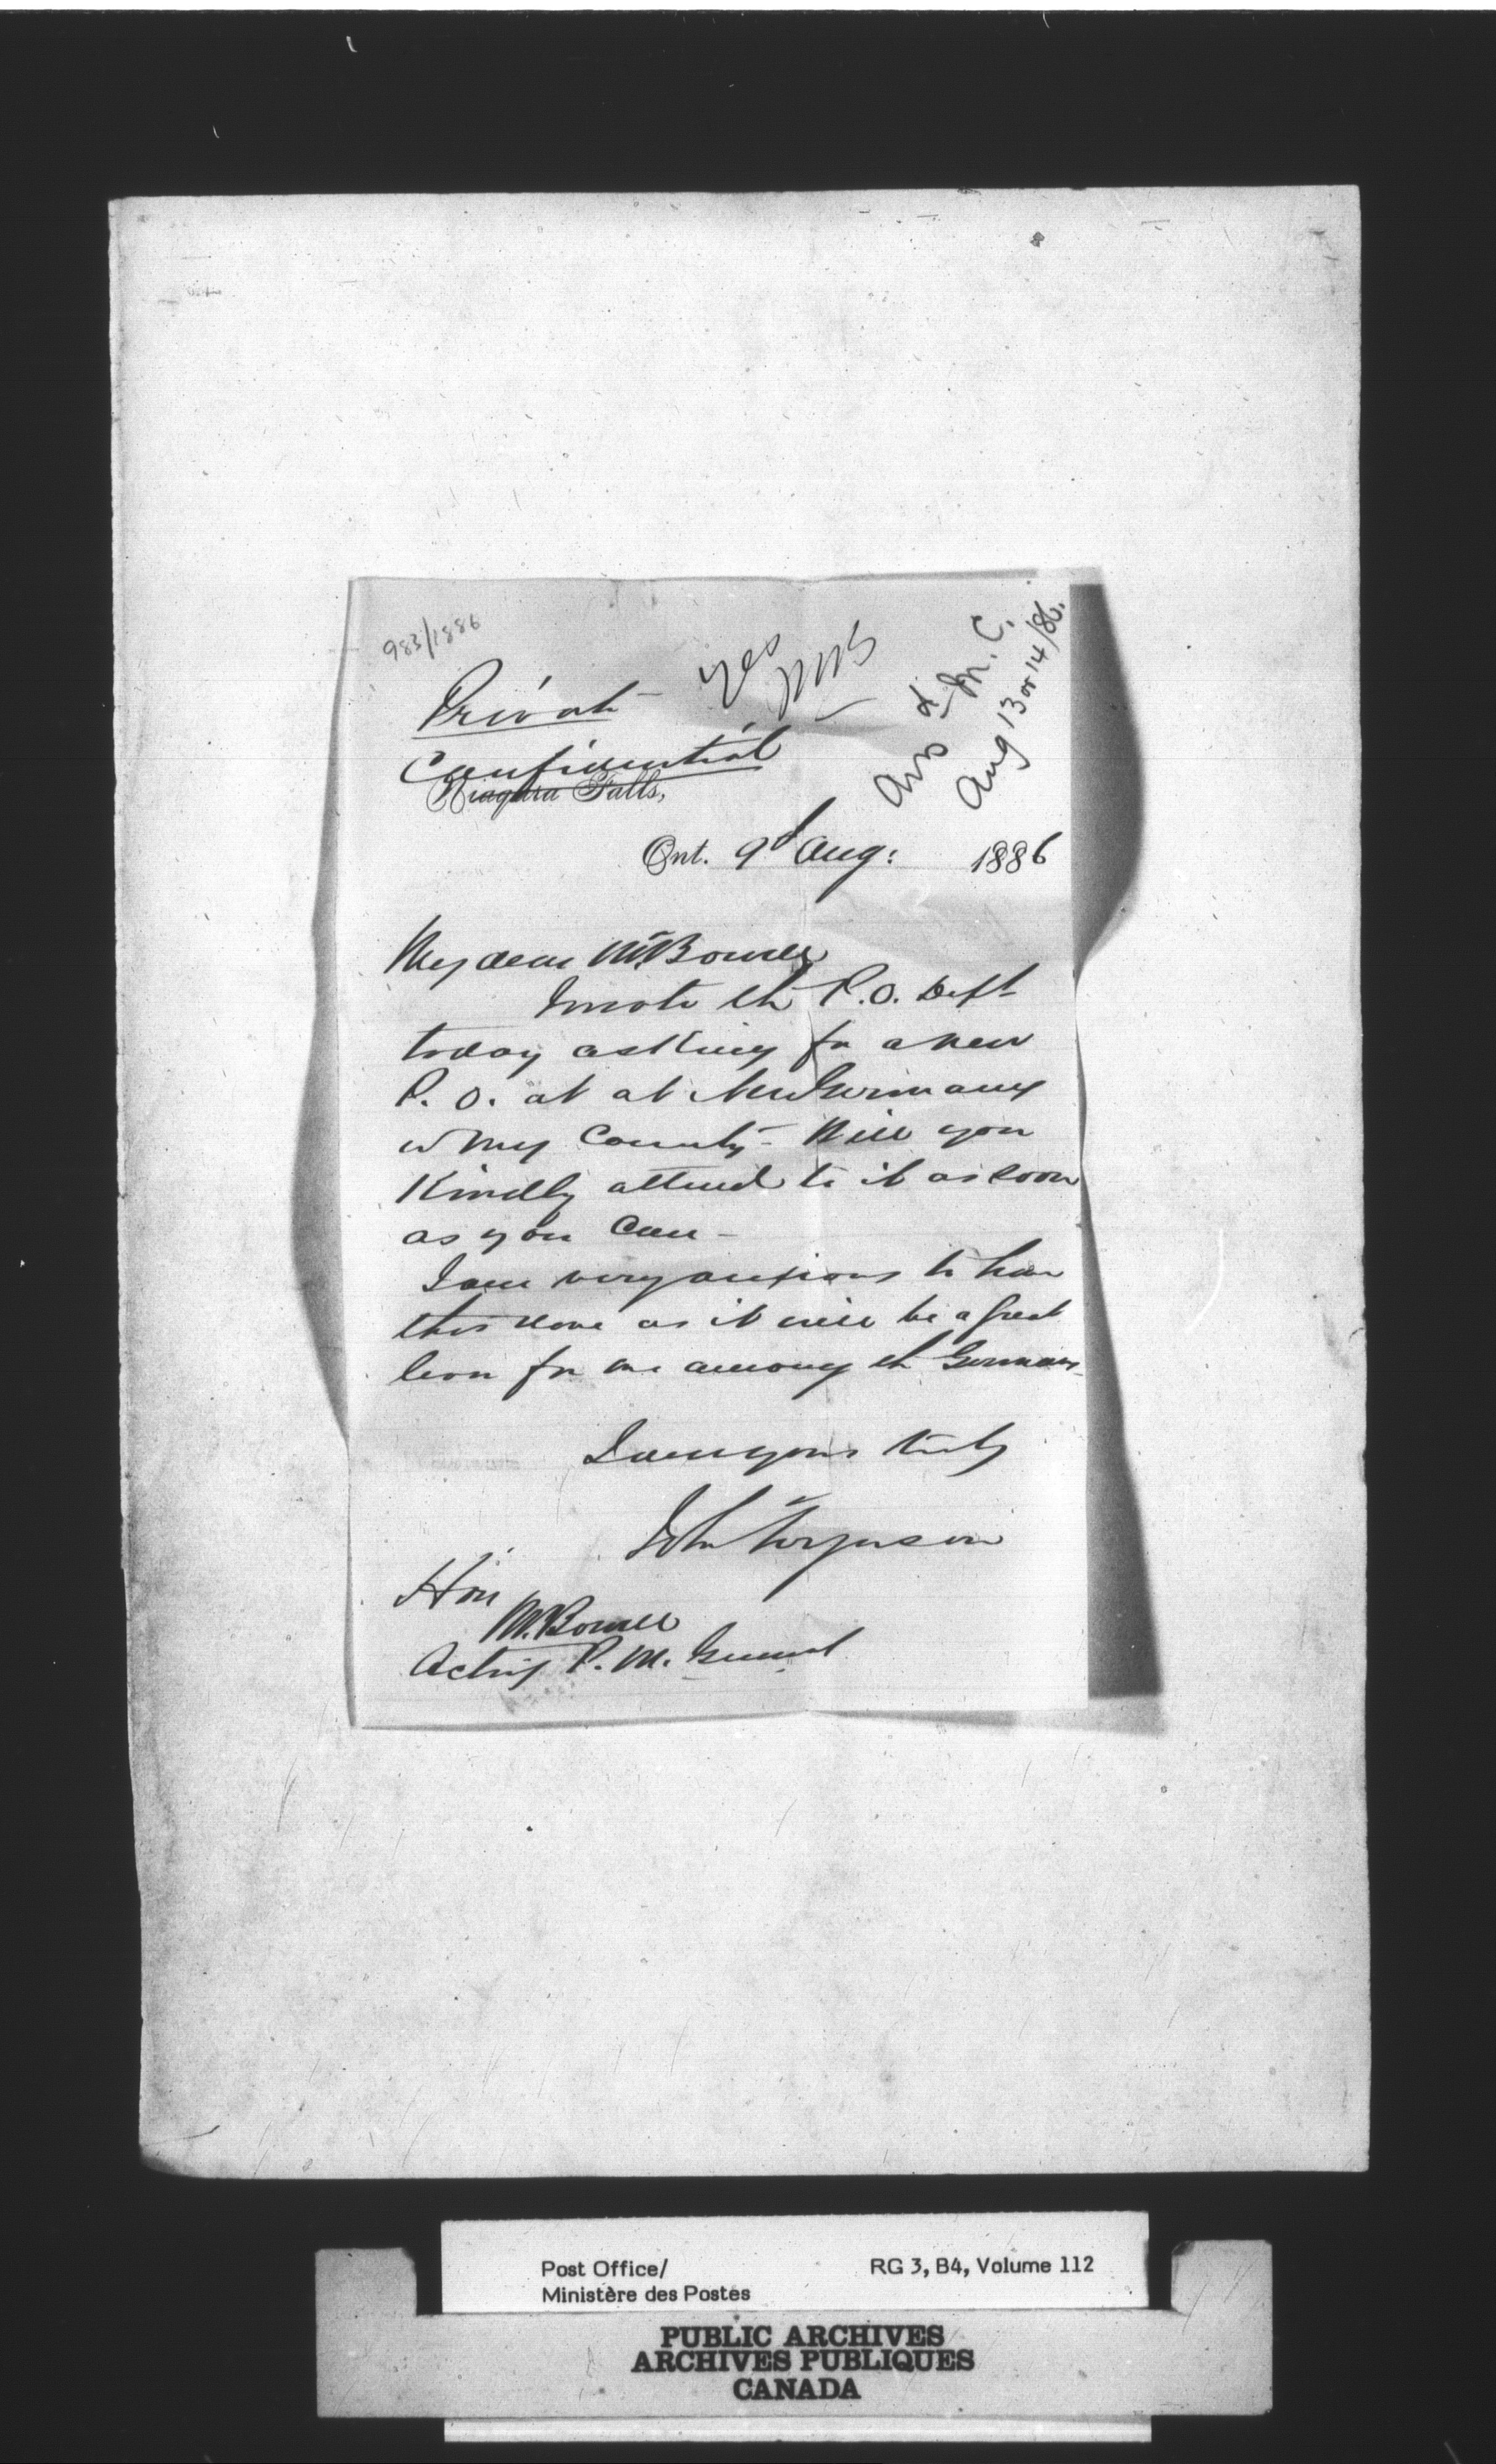 983/1886
Yes
MB
Ans d M. C.
Aug 13 or 14/86.
Private
Confidential
Niagara Falls,
Ont. 9th Aug: 1886
My dear Mr Bowell
I wrote the P.O. Dept
today asking for a new
P. O. at at New Germany
in my County - Will you
Kindly attend to it as soon
as you can -
I am very anxious to have
this done as it will be a great
boon for me among the Germans
I am yours truly
John Ferguson
Hon
M. Bowell
Acting P. M. General
Post Office/
Ministère des Postes
RG 3, B4, Volume 112
PUBLIC ARCHIVES
ARCHIVES PUBLIQUES
CANADA